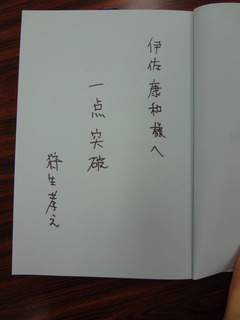 伊佐康和様へ
一点突破
蒋生孝之